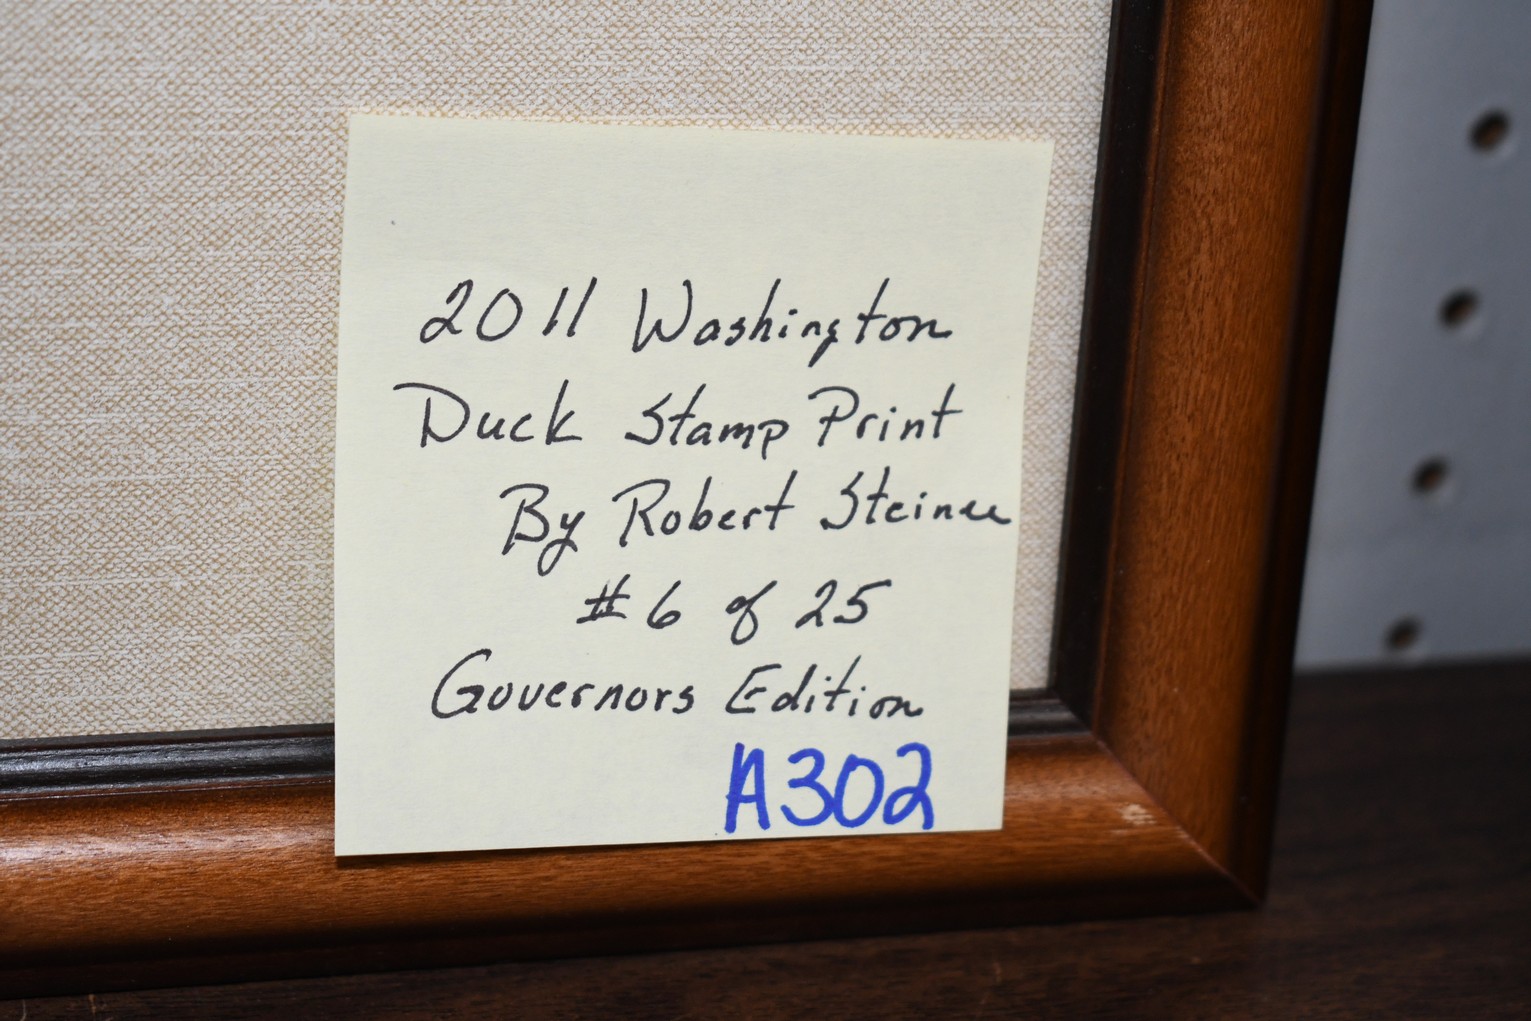 2011 Washington
Duck Stamp Print
By Robert Steiner
#6 of 25
Governors Edition
A302